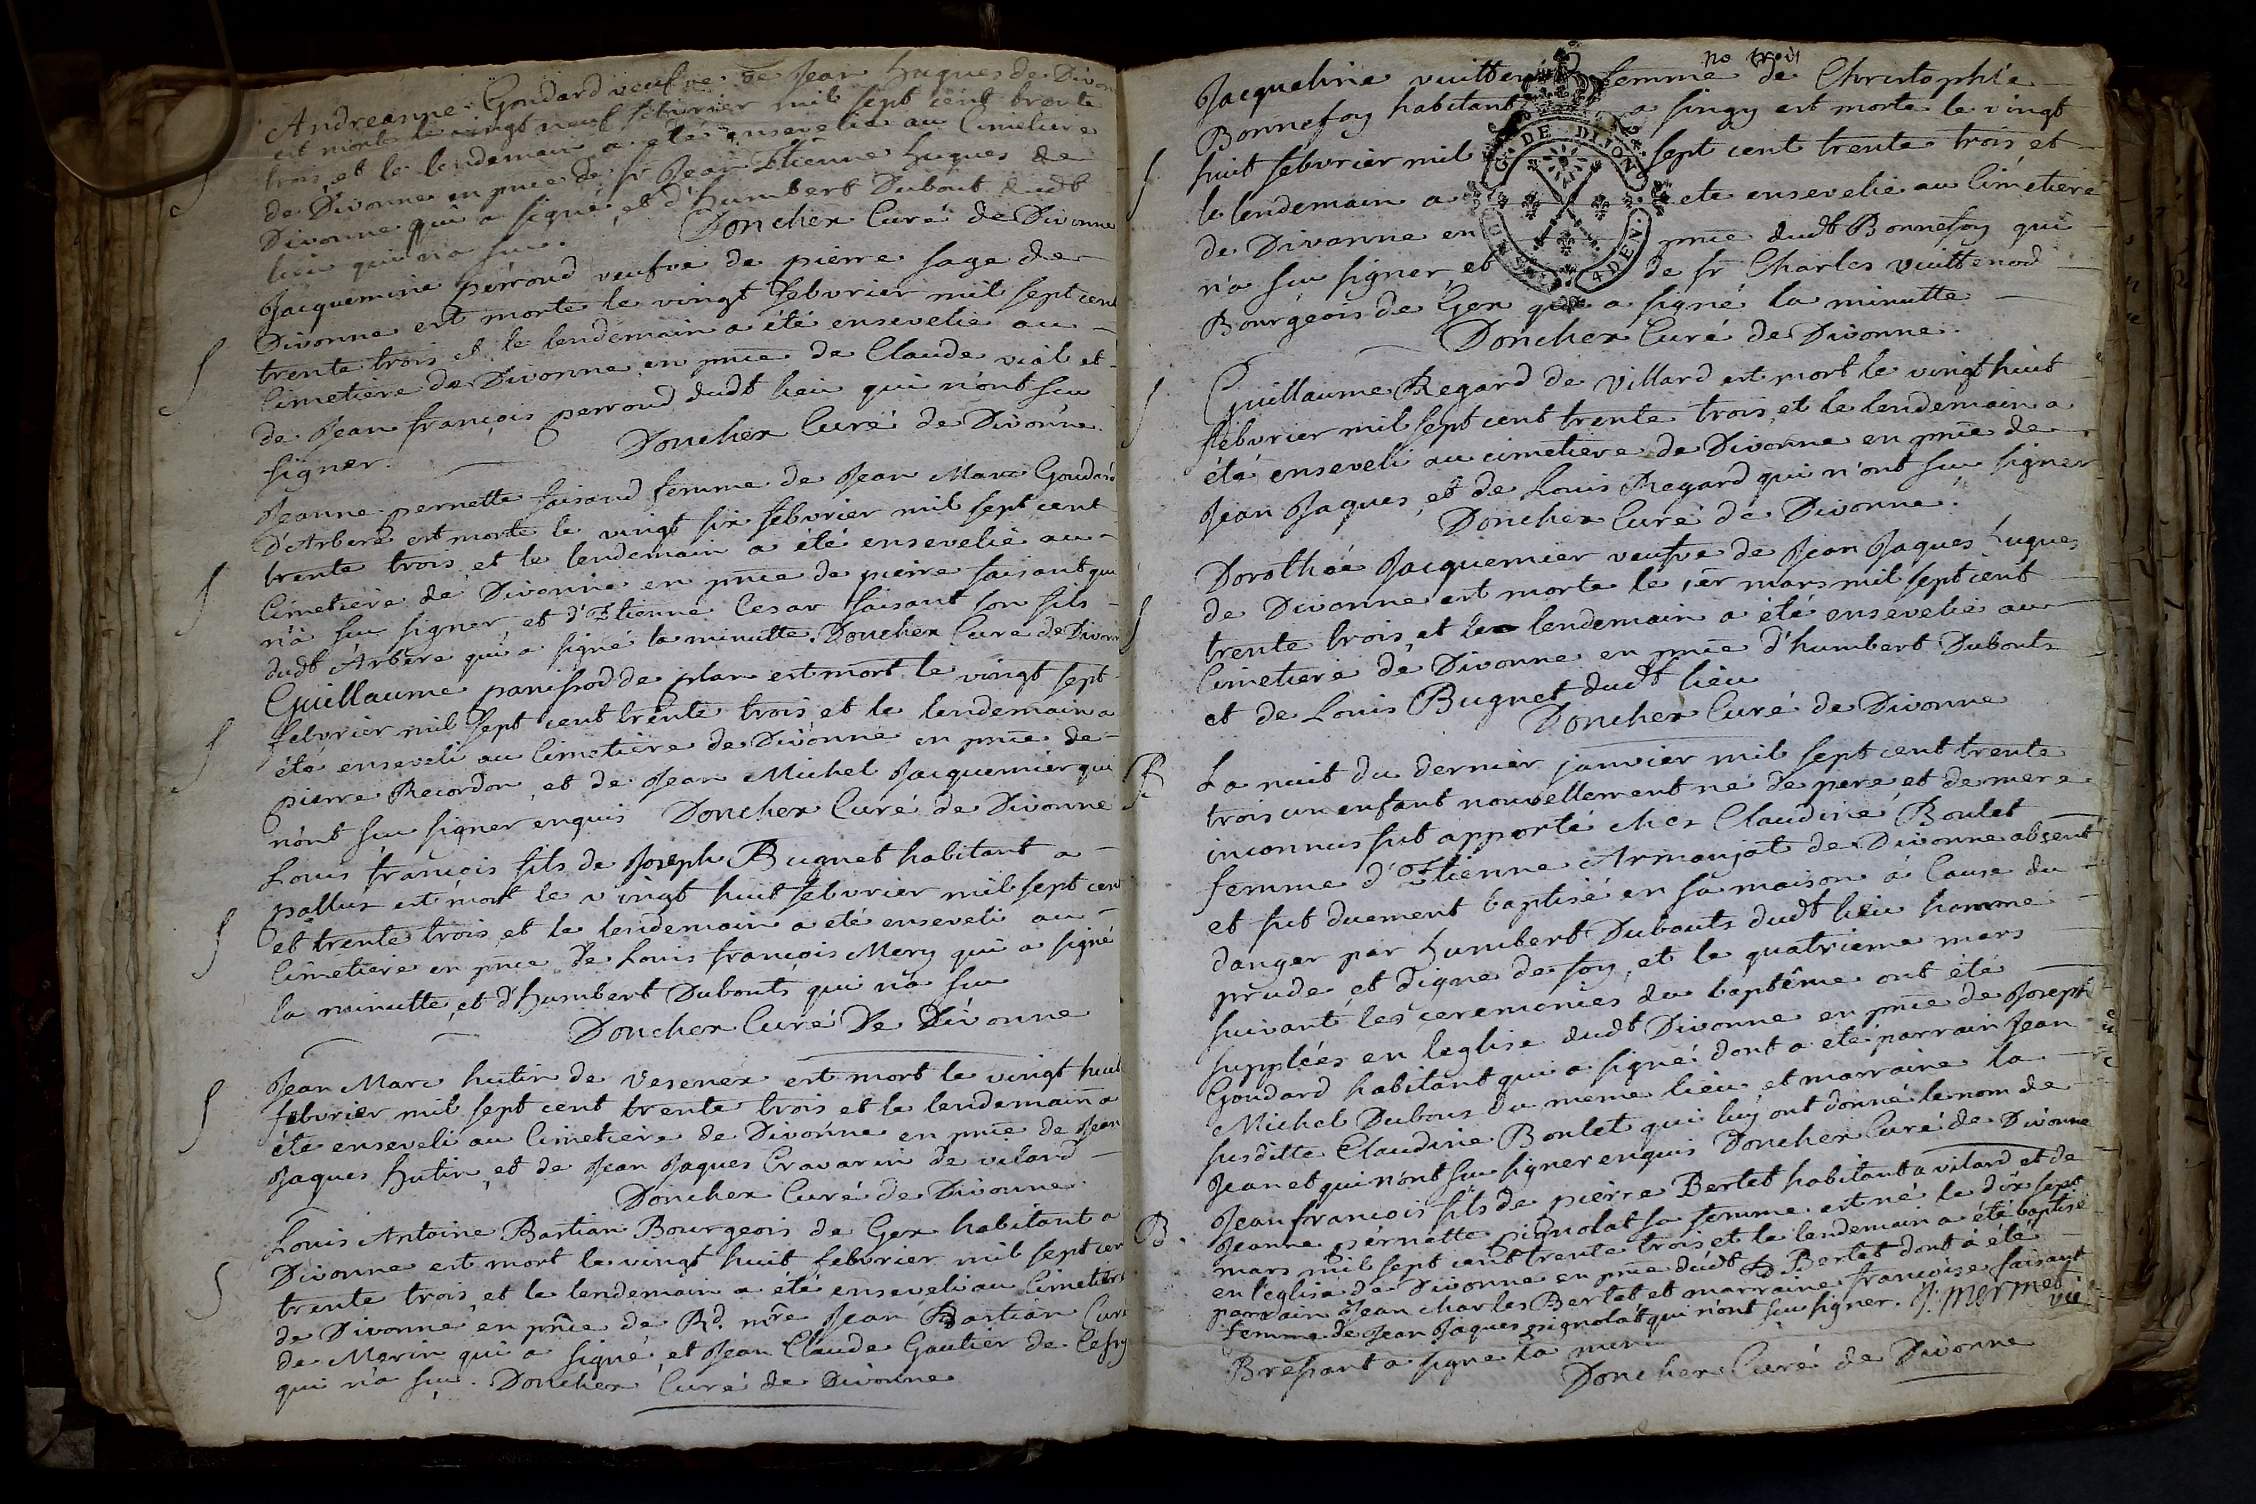 Andreanne Goudard veufve de Jean hugues de Divonne
est morte le vingt neuf febvrier mil sept cent trente
trois, et le lendemain a été ensevelie au Cimetiere
de Divonne en pnce de Sr Jean Etienne hugues de
Divonne qui a signé, et d'humbert Dubout dudt
lieu qui n'a su. Donchex Curé de Divonne
S Jacquemine perroud veufve de pierre sage de
Divonne est morte le vingt febvrier mil sept cent
trente trois et le lendemain a été ensevelie au
Cimetiere de Divonne en pnce de Claude vial et
de Jean françois perroud dudt lieu qui n'ont su
signer. Donchex Curé de Divonne.
S Jeanne pernette faisand femme de Jean Marc Goudard
D'Arbere est morte le vingt six febvrier mil sept cent
trente trois et le lendemain a été ensevelie au
Cimetiere de Divonne en pnce de pierre faisant qui
n'a su signer et d'Etienne Cesar faisant son fils
dudt Arbere qui a signé la minutte. Donchex Curé de Divonne
S Guillaume panissod de plan est mort le vingt sept
febvrier mil sept cent trente trois et le lendemain a
été enseveli au Cimetiere de Divonne en pnce de
pierre Recordon, et de Jean Michel Jacquemier qui
n'ont su signer enquis Donchex Curé de Divonne
S Louis françois fils de Joseph Bugnet habitant a
est mort le vingt huit febvrier mil sept cent
et trente trois et le lendemain a été enseveli au
Cimetiere en pnce de Louis françois Mery qui a signé
la minutte, et d'humbert Dubouts qui n'a su
Donchex Curé De Divonne
S Jean Marc hutin de Vesenex est mort le vingt huit
febvrier mil sept cent trente trois et le lendemain a
été enseveli au Cimetiere de Divonne en pnce de Jean
Jaques hutin, et de Jean Jaques Cravarin de vilard
Donchex Curé de Divonne.
S Louis Antoine Bastian Bourgeois de Gex habitant a
Divonne est mort le vingt huit febvrier mil sept cent
trente trois et le lendemain a été enseveli au Cimetiere
de Divonne en pnce de Rd. mre Jean Bastian Curé
de Merin qui a signé, et Jean Claude Gautier de
qui n'a su. Donchex Curé de Divonne
no trois
S Jacqueline femme de Christophle
Bonnefoy habitant a singy est morte le vingt
huit febvrier mil sept cent trente trois et
le lendemain a été ensevelie au Cimetiere
de Divonne en pnce dudt Bonnefoy qui
n'a su signer, et de Sr Charles vuittenod
Bourgeois de Gex qui a signé la minutte
Donchex Curé de Divonne.
S Guillaume Regard de Villard est mort le vingt huit
febvrier mil sept cent trente trois et le lendemain a
été enseveli au cimetiere de Divonne en pnce de
Jean Jaques, et de Louis Regard qui n'ont su signer
Donchex Curé de Divonne.
S Dorothée Jacquemier veufve de Jean Jaques hugues
de Divonne est morte le 1er mars mil sept cent
trente trois, et le lendemain a été ensevelie au
Cimetiere de Divonne en pnce d'humbert Dubouts
et de Louis Bugnet dudt lieu
Donchex Curé de Divonne
B La nuit du dernier janvier mil sept cent trente
trois un enfant nouvellement né de pere et de mere
inconnus fut apporté chez Claudine Boulet
femme d'Etienne Armanjat de Divonne absent
et fut duement baptisé en sa maison à cause du
danger par humbert Dubouts dudt lieu homme
prude et digne de foy, et le quatrieme mars
suivant les ceremonies du baptême ont été
supplées en l'eglise dudt Divonne en pnce de Joseph
Goudard habitant qui a signé dont a été parrain Jean
Michel Dubous du meme lieu et marraine la
susditte Claudine Boulet qui luy ont donné le nom de
Jean et qui n'ont su signer enquis Donchex Curé de Divonne
B. Jean francois fils de pierre Bertet habitant a vilard et de
Jeanne pernette pignolat sa femme est né le dix sept
mars mil sept cent trente trois et le lendemain a été baptisé
en l'eglise de Divonne en pnce dudt Bertet dont a été
parrain Jean Charles Bertet et marraine françoise faisant
femme de Jean Jaques pignolat qui n'ont su signer. J: mermet vic
Bressant a signé la min
Donchex Curé de Divonne